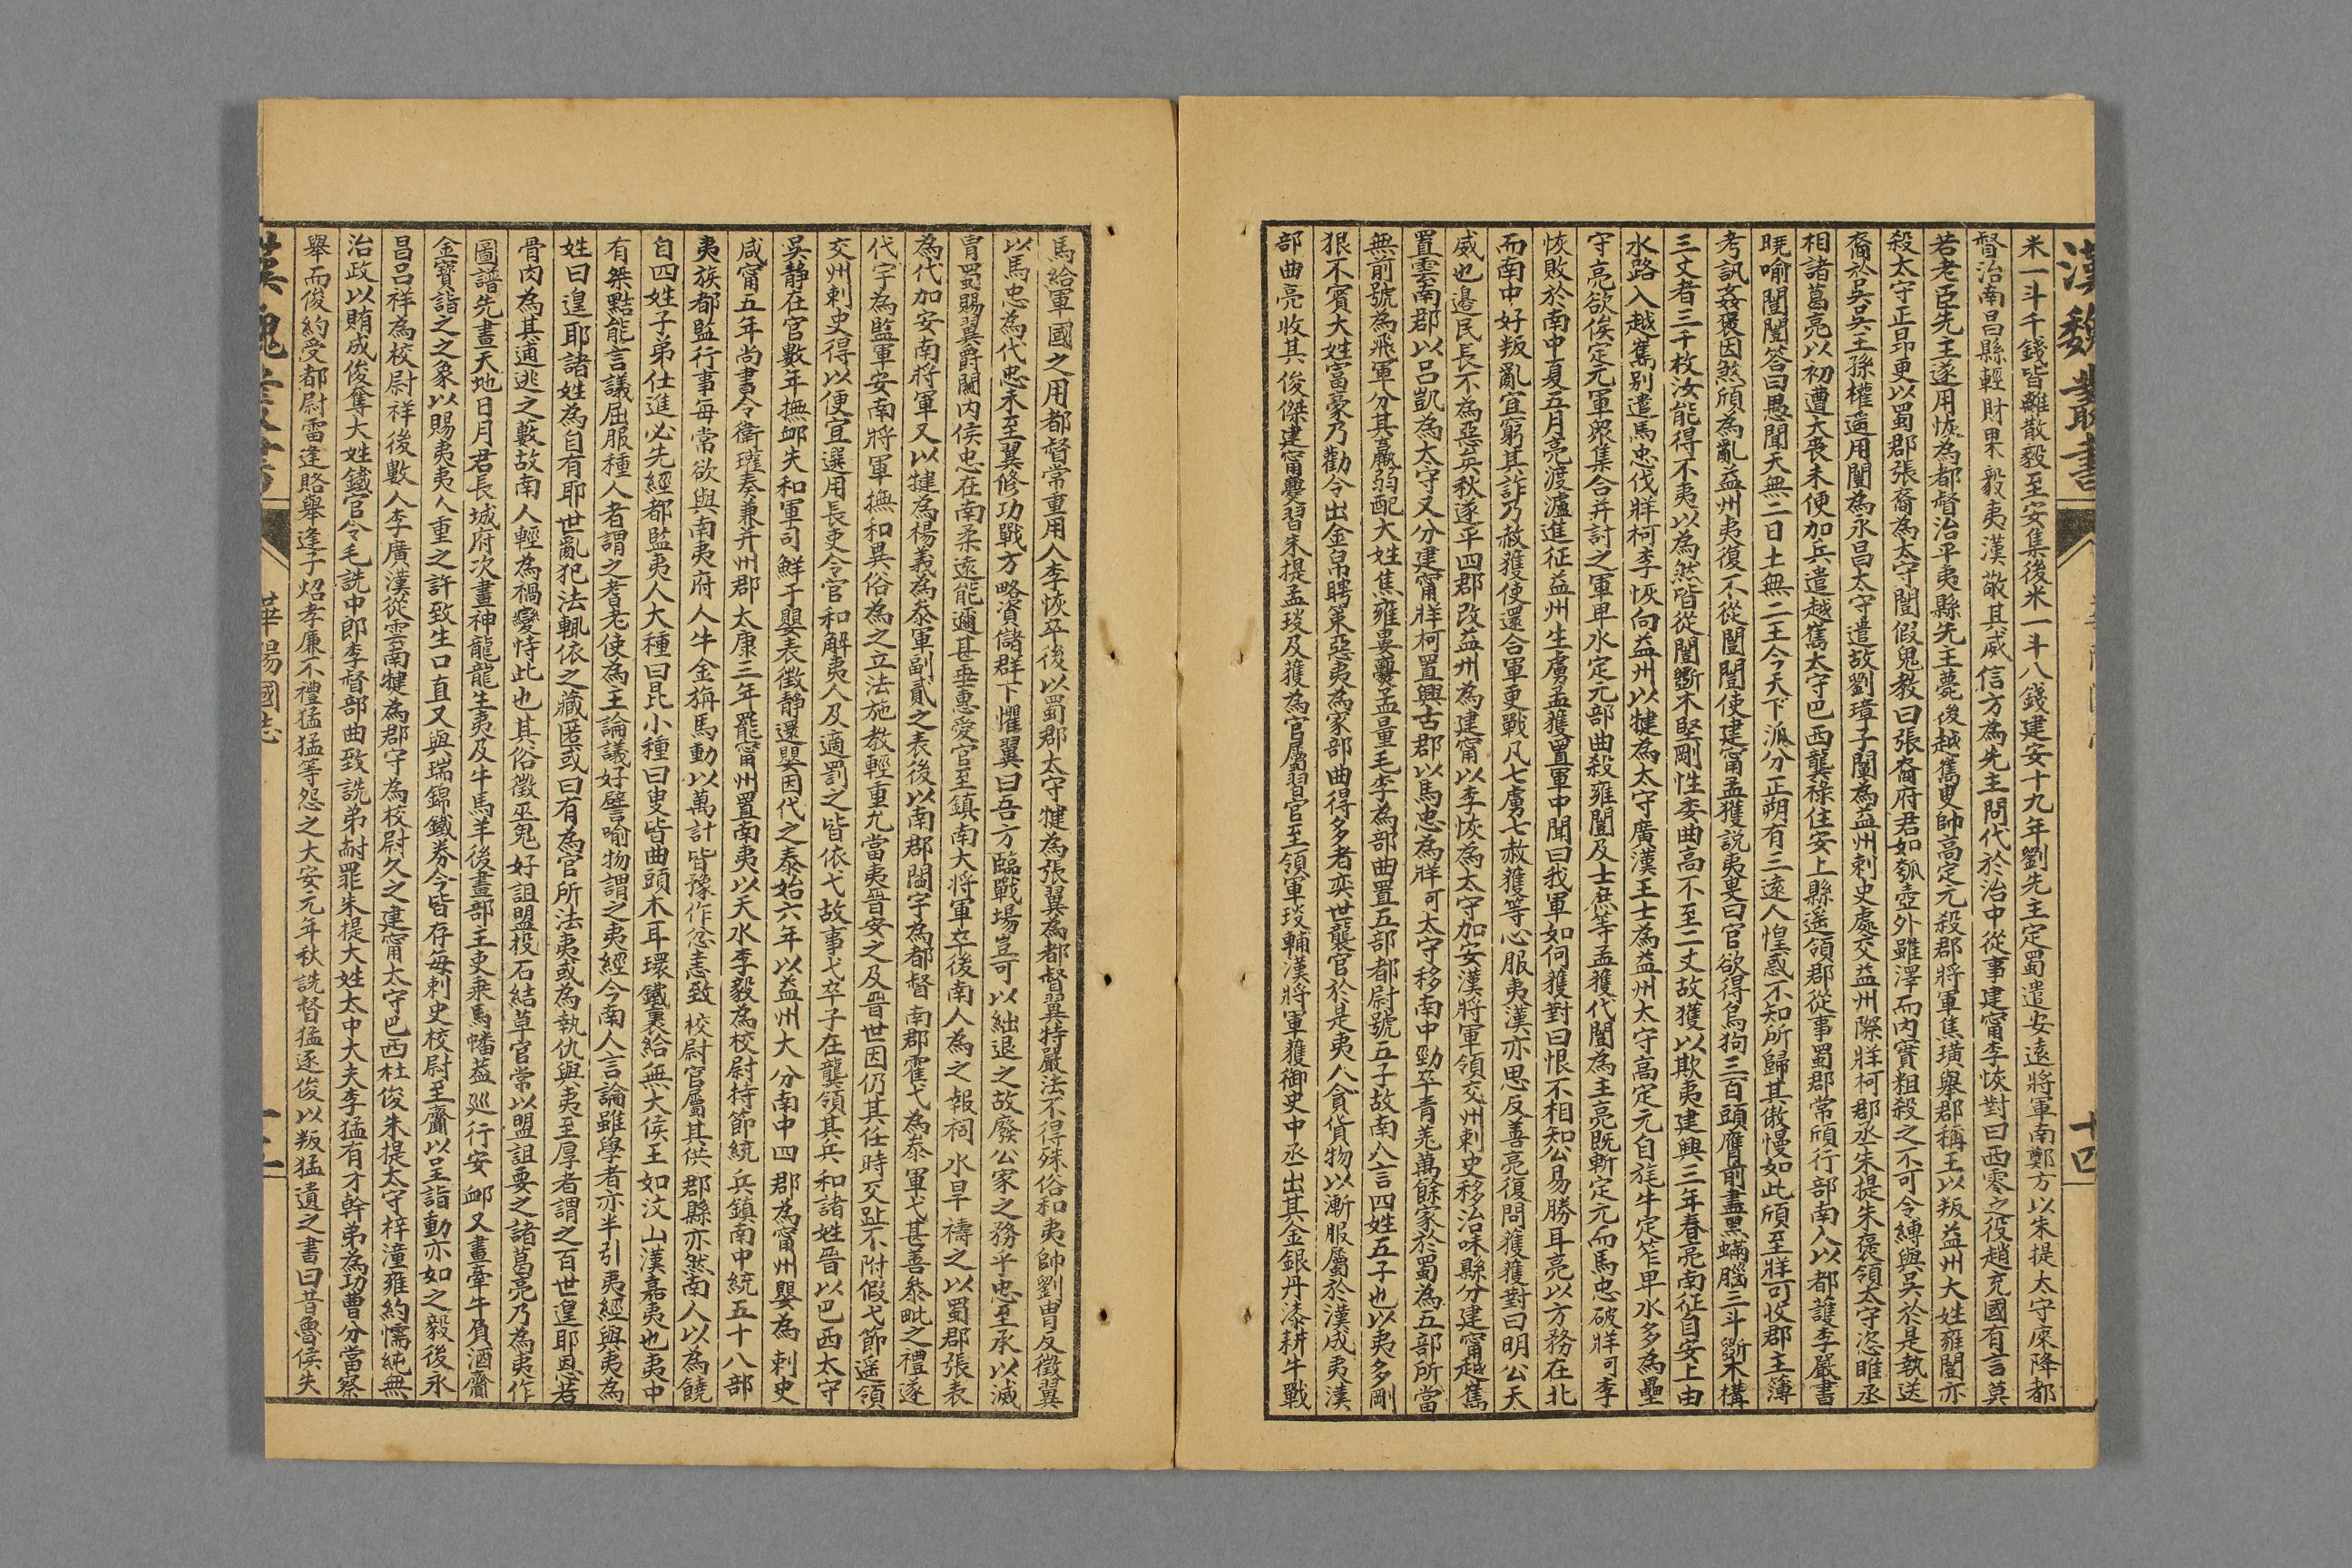 漢魏叢書
十四
米一斗千錢皆離散毅至安集後米一斗八錢建安十九年劉先主定蜀遣安遠將軍南鄭方以朱提太守庲降都
督治南昌縣輕財果毅夷漢敬其威信方為先主問代於治中從事建甯李恢對曰西零之役趙充國有言莫
若老臣先主遂用恢為都督治平夷縣先主薨後越嶲叟帥高定元殺郡將軍焦璜舉郡稱王以叛益州大姓雍闓亦
殺太守正昂更以蜀郡張裔為太守闓假鬼教曰張裔府君如瓠壺外雖澤而內實粗殺之不可令縛與吳於是執送
裔於吳吳主孫權遥用闓為永昌太守遣故劉璋子闡為益州刺史處交益州際牂柯郡丞朱提朱褒領太守恣睢丞
相諸葛亮以初遭大喪未便加兵遣越嶲太守巴西龔祿住安上縣遥領郡從事蜀郡常頎行部南人以都護李嚴書
曉喻闓闓答曰愚聞天無二日土無二王今天下派分正朔有三遠人惶惑不知所歸其傲慢如此頎至牂可收郡主簿
考訊姦褒因煞頎為亂益州夷復不從闓闓使建甯孟獲説夷叟曰官欲得烏狗三百頭膺前盡黑螨腦三斗斲木構
三丈者三千枚汝能得不夷以為然皆從闓斲木堅剛性委曲高不至二丈故獲以欺夷建興三年春亮南征自安上由
水路入越嶲別遣馬忠伐牂柯李恢向益州以犍為太守廣漢王士為益州太守高定元自旄牛定笮卑水多為壘
守亮欲俟定元軍眾集合并討之軍卑水定元部曲殺雍闓及士庶等孟獲代闓為主亮既斬定元而馬忠破牂可李
恢敗於南中夏五月亮渡瀘進征益州生虜孟獲置軍中問曰我軍如何獲對曰恨不相知公易勝耳亮以方務在北
而南中好叛亂宜窮其詐乃赦獲使還合軍更戰凡七虜七赦獲等心服夷漢亦思反善亮復問獲獲對曰明公天
威也邊民長不為惡矣秋遂平四郡改益州為建甯以李恢為太守加安漢將軍領交州刺史移治味縣分建甯越嶲
置雲南郡以呂凱為太守又分建甯牂柯置興古郡以馬忠為牂可太守移南中勁卒青羌萬餘家於蜀為五部所當
無前號為飛軍分其羸弱配大姓焦雍婁爨孟量毛李為部曲置五部都尉號五子故南人言四姓五子也以夷多剛
狠不賓大姓富豪乃勸令出金帛聘策惡夷為家部曲得多者奕世襲官於是夷人貪貨物以漸服屬於漢成夷漢
部曲亮收其俊傑建甯爨習朱提孟琰及獲為官屬習官至領軍琰輔漢將軍獲御史中丞出其金銀丹漆耕牛戰
馬給軍國之用都督常重用人李恢卒後以蜀郡太守犍為張翼為都督翼持嚴法不得殊俗和夷帥劉胄反徵翼
以馬忠為代忠未至翼修功戰方略資儲群下懼翼曰吾方臨戰場豈可以絀退之故廢公家之務乎忠至承以滅
冑蜀賜翼爵關內侯忠在南柔遠能邇甚垂惠愛官至鎮南大將軍卒後南人為之報祠水旱禱之以蜀郡張表
為代加安南將軍又以犍為楊義為參軍副貳之表後以南郡閻宇為都督南郡霍弋為參軍弋甚善參毗之禮遂
代宇為監軍安南將軍撫和異俗為之立法施教輕重允當夷晉安之及晉世因仍其任時交趾不附假弋節遥領
交州刺史得以便宜選用長吏今官和解夷人及適罰之皆依弋故事弋卒子在龔領其兵和諸姓晉以巴西太守
吳静在官數年撫卹失和軍司鮮于嬰表徵静還嬰因代之泰始六年以益州大分南中四郡為甯州嬰為刺史
咸甯五年尚書令衛瓘奏兼并州郡太康三年罷甯州置南夷以天水李毅為校尉持節統兵鎮南中統五十八部
夷族都監行事每常欲與南夷府入牛金旃馬動以萬計皆豫作忿恚致校尉官屬其供郡縣亦然南人以為饒
自四姓子弟仕進必先經都監夷人大種曰昆小種曰叟皆曲頭木耳環鐵裹給無大侯王如汶山漢嘉夷也夷中
有桀黠能言議屈服種人者謂之耆老使為主論議好譬喻物謂之夷經今南人言論雖學者亦半引夷經與夷為
姓曰遑耶諸姓為自有耶世亂犯法輒依之藏匿或曰有為官所法夷或為執仇與夷至厚者謂之百世遑耶恩若
骨肉為其逋逃之藪故南人輕為禍變恃此也其俗徵巫鬼好詛盟投石結草官常以盟詛要之諸葛亮乃為夷作
圖譜先畫天地日月君長城府次畫神龍龍生夷及牛馬羊後畫部主吏乘馬幡葢巡行安卹又畫牽牛負酒齎
金寶詣之之象以賜夷夷人重之許致生口直又與瑞錦鐵券今皆存每刺史校尉至齎以呈詣動亦如之毅後永
昌呂祥為校尉祥後數人李廣漢從雲南犍為郡守為校尉久之建甯太守巴西杜俊朱提太守梓潼雍約懦純無
治政以賄成俊奪大姓鐵官令毛詵中郎李督部曲致詵弟耐罪朱提大姓太中大夫李猛有才幹弟為功曹分當察
舉而俊約受都尉雷逢賂舉逢子炤孝廉不禮猛猛等怨之大安元年秋詵督猛逐俊以叛猛遺之書曰昔魯侯失
漢魏叢書
華陽國志